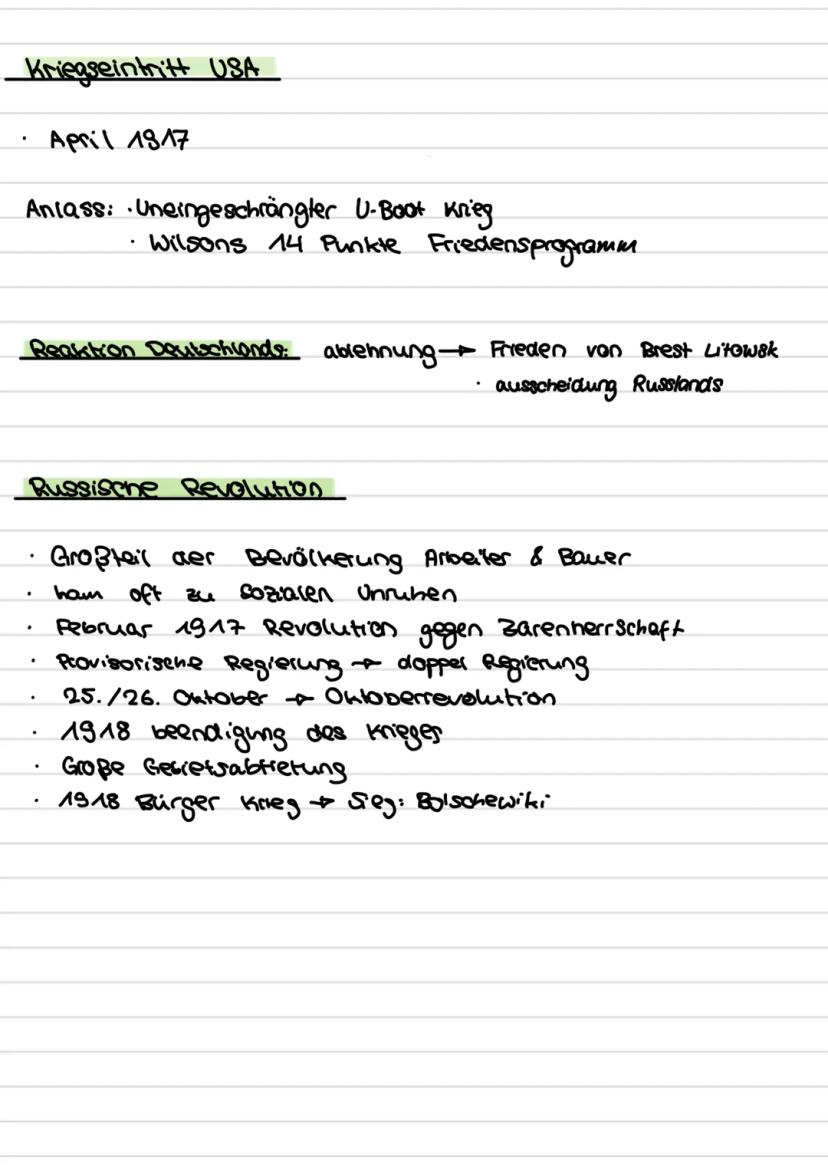 Kriegseintritt USA
· April 1917
Anlass: · Uneingeschrängter U-Boot Krieg
· Wilsons 14 Punkte Friedensprogramm
Reaktion Deutschlands: ablehnung → Frieden von Brest Litowsk
· ausscheidung Russlands
Russische Revolution
· Großteil der Bevölkerung Arbeiter & Bauer
· kam oft zu sozialen Unruhen
· Februar 1917 Revolution gegen Zarenherrschaft
· Provisorische Regierung → doppel Regierung
· 25./26. Oktober → Oktoberrevolution
· 1918 beendigung des Krieges
· Große Gebietsabtretung
· 1918 Bürger Krieg → Sieg: Bolschewiki